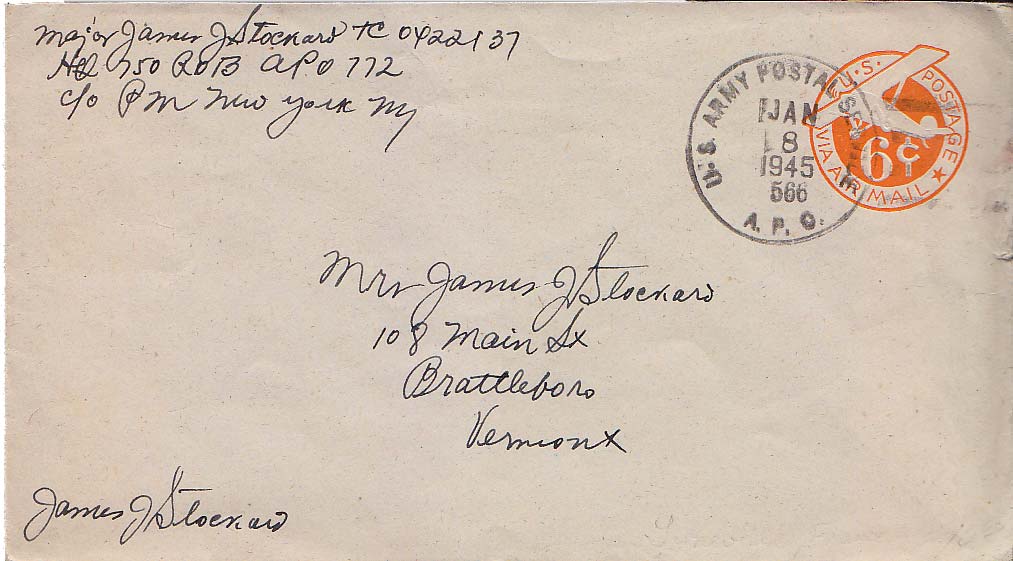 Major James J Stockard TC 0422137
Hq 750 ROB APO 772
c/o PM New York NY
U.S. ARMY POSTAL SERVICE
JAN
8
1945
566
A.P.O.
U.S. POSTAGE
6¢
VIA AIR MAIL
Mrs James J Stockard
108 Main St
Brattleboro
Vermont
James J Stockard